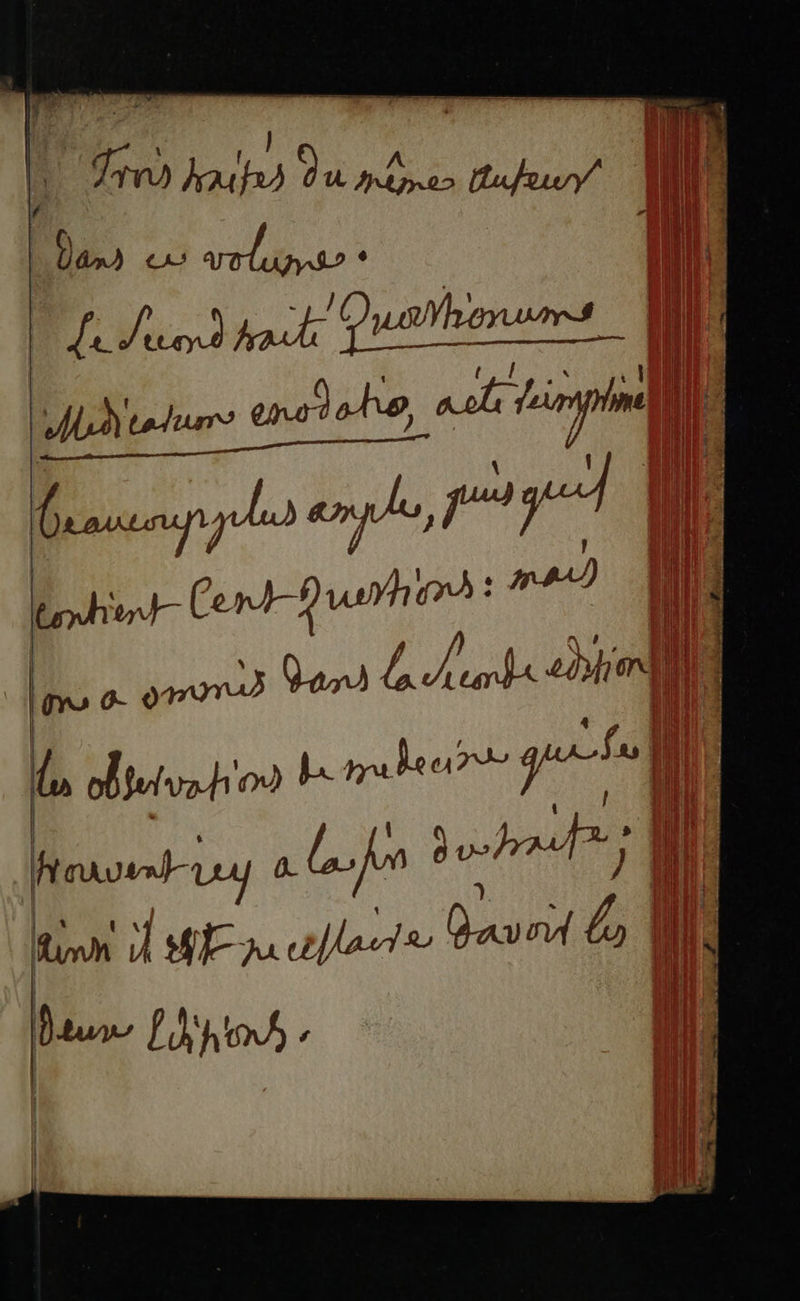 Trois traités du même Auteur
dans ce volume.
Le second traité Quæstionum
Medicarum enodatio, a esté réimprimé
beaucoup plus ample, puis qu'il
contient Cent Questions: mais
on a omis dans la seconde edition
les observations de medecine qui se
trouvent icy a la fin du traité;
ainsi il est nécessaire d'avoir les
deux Editions.